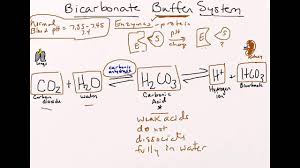 Bicarbonate Buffer System
Normal
Blood pH = 7.35 - 7.45
7.4
Enzymes - protein
E S
pH
change
E S ?
carbonic
anhydrase
CO2 + H2O ⇌ H2CO3 ⇌ H+ + HCO3
Carbon
Dioxide
water
Carbonic
Acid *
Hydrogen
ion
Bicarbonate
* weak acids
do not
dissociate
fully in water